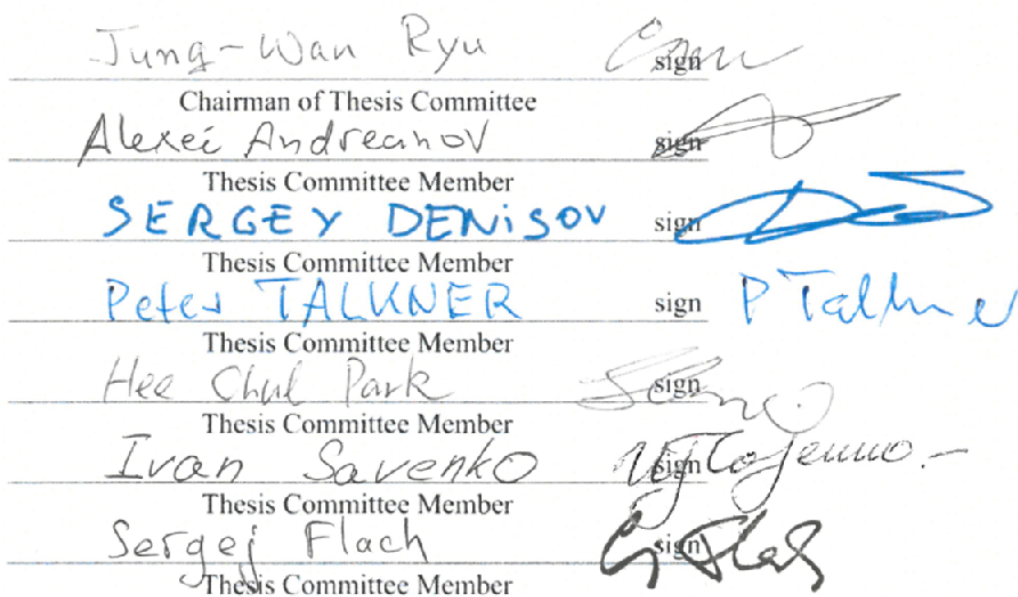 Jung-Wan Ryu sign
Chairman of Thesis Committee
Alexei Andreanov sign
Thesis Committee Member
SERGEY DENiSOV sign
Thesis Committee Member
Peter TALKNER sign P Talkner
Thesis Committee Member
Hee Chul Park sign
Thesis Committee Member
Ivan Savenko sign
Thesis Committee Member
Sergej Flach sign
Thesis Committee Member